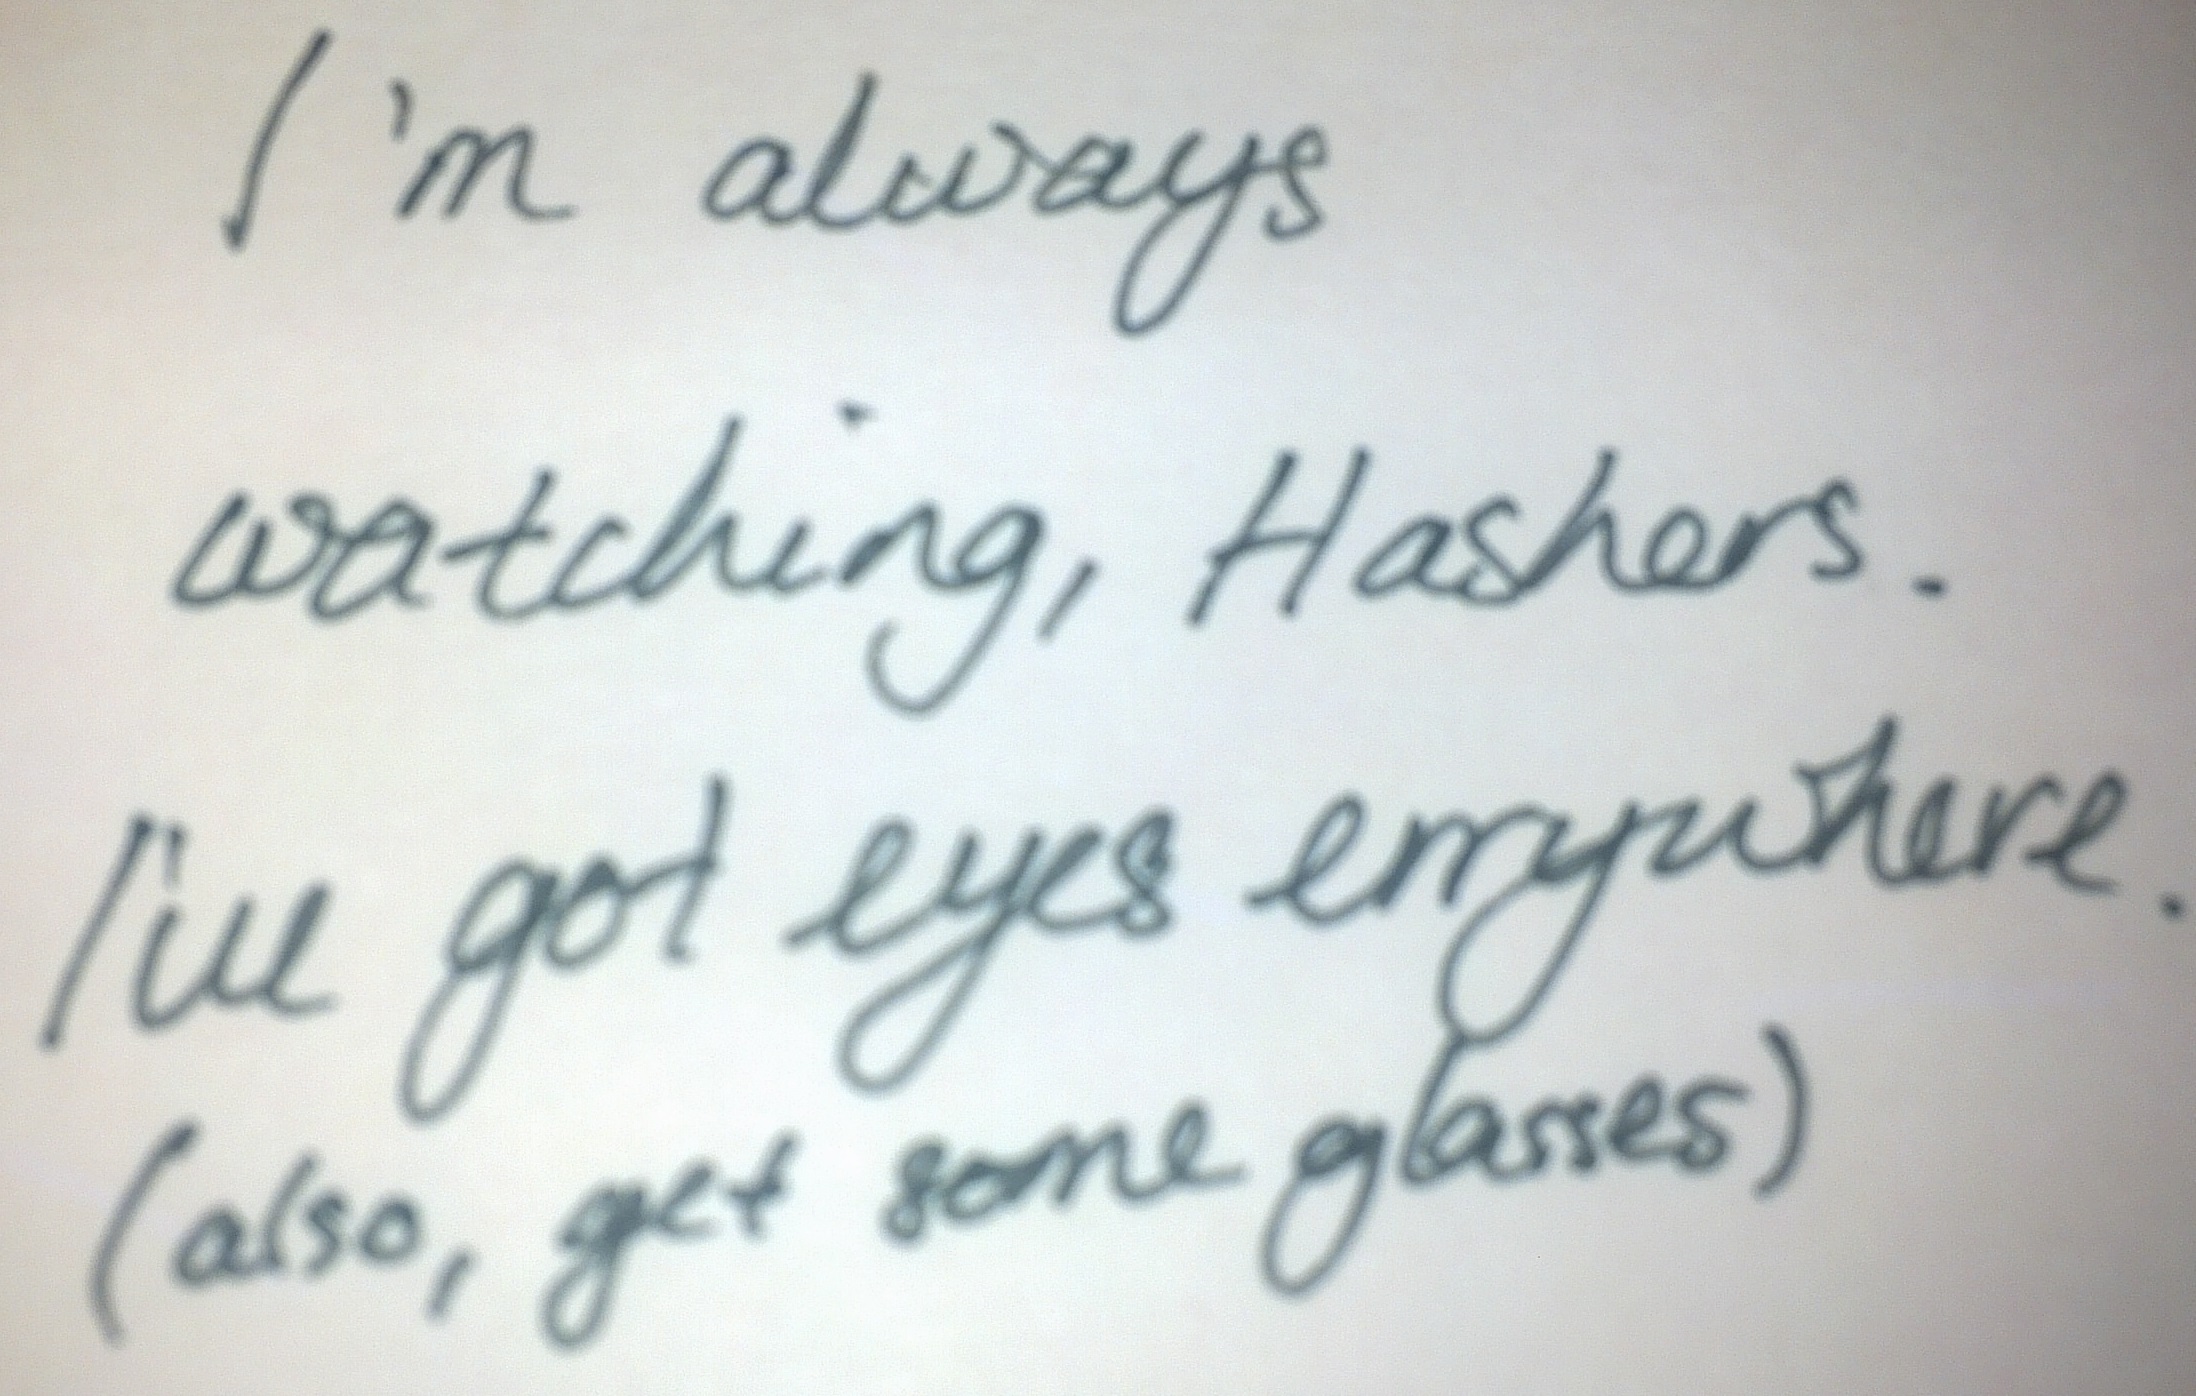 I'm always
watching, Hashers.
I've got eyes errywhere.
(also, get some glasses)